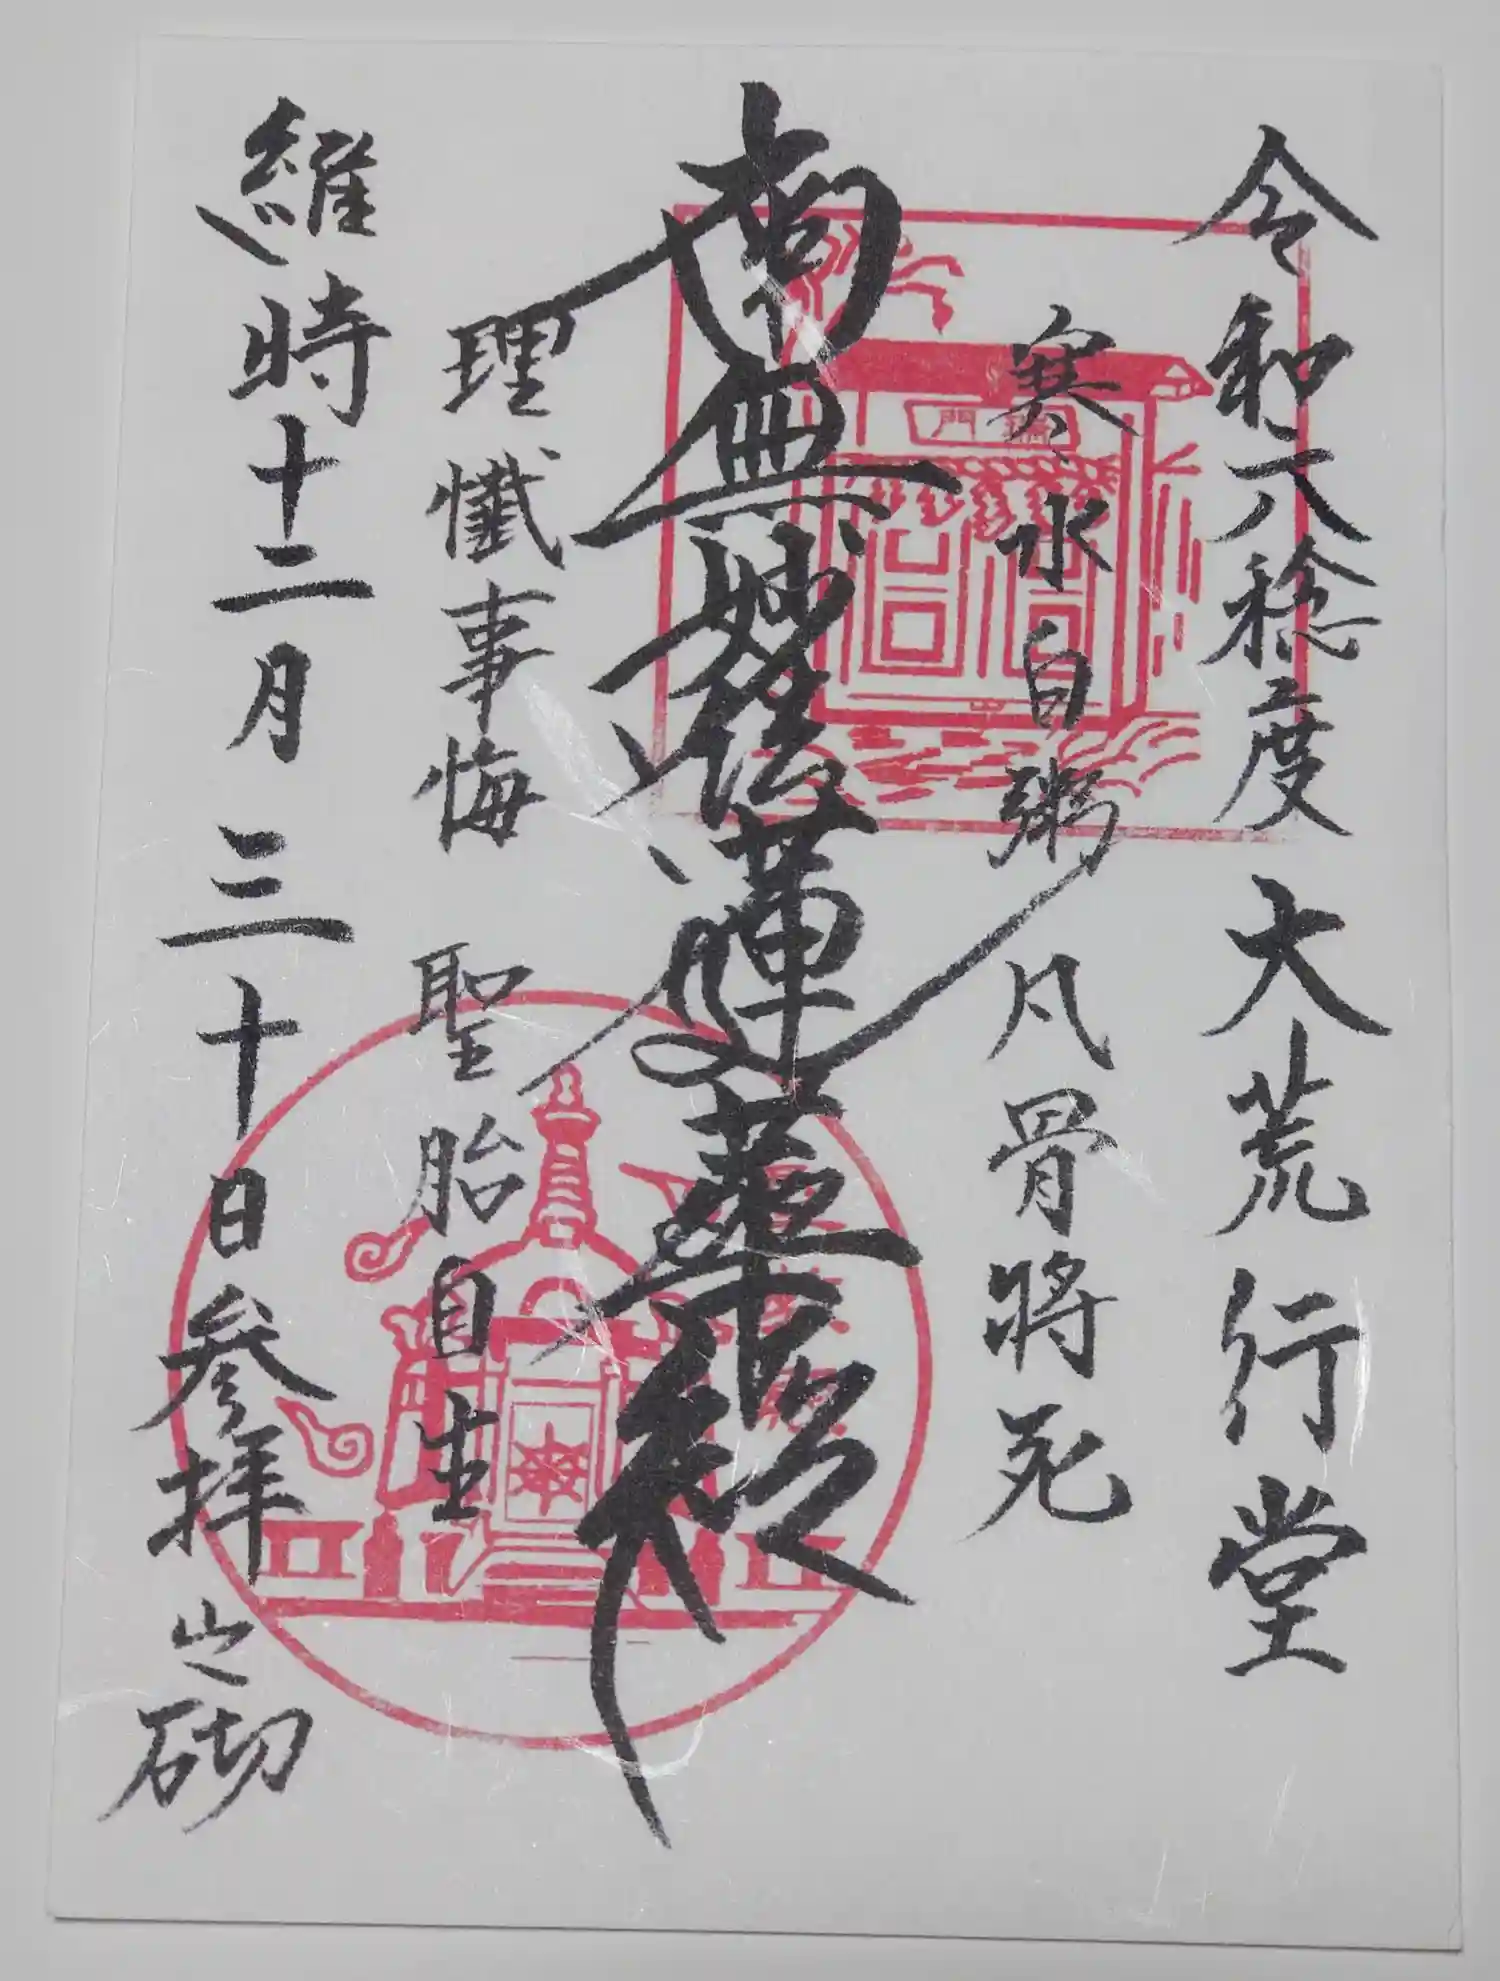 令和六稔度大荒行堂
寒水白粥凡骨将死
南無妙法蓮華経
理懺事悔聖胎自生
維時十二月三十日参拝之砌
門